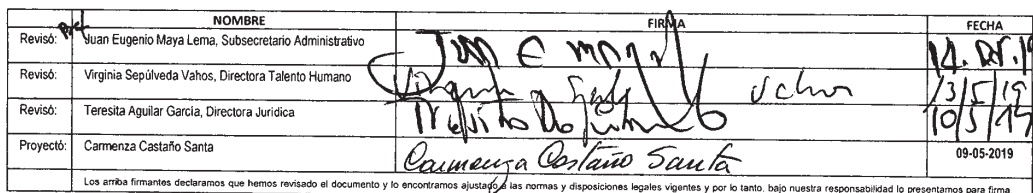 NOMBRE FIRMA FECHA
Revisó: Juan Eugenio Maya Lema, Subsecretario Administrativo
Revisó: Virginia Sepúlveda Vahos, Directora Talento Humano 13/5/19
Revisó: Teresita Aguilar García, Directora Jurídica 10/5/19
Proyectó: Carmenza Castaño Santa Carmenza Castaño Santa 09-05-2019
Los arriba firmantes declaramos que hemos revisado el documento y lo encontramos ajustado a las normas y disposiciones legales vigentes y por lo tanto, bajo nuestra responsabilidad lo presentamos para firma